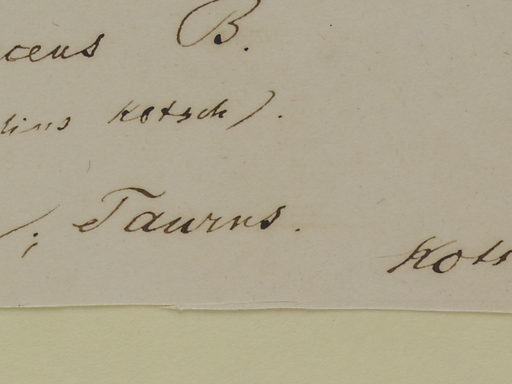 ceus B.
lius Kotsch).
); Taurus.
Kots